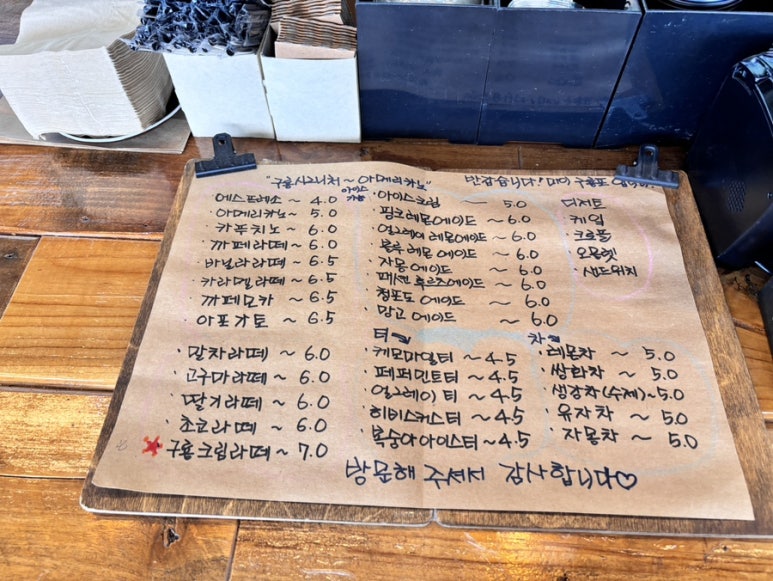 "구룡시그니처~아메리카노"
반갑습니다! 여기 구룡포 입니다.
에스프레소 ~ 4.0
아메리카노 ~ 5.0
카푸치노 ~ 6.0
까페라떼 ~ 6.0
바닐라라떼 ~ 6.5
카라멜라떼 ~ 6.5
까페모카 ~ 6.5
아포가토 ~ 6.5
· 말차라떼 ~ 6.0
· 고구마라떼 ~ 6.0
· 딸기라떼 ~ 6.0
· 초코라떼 ~ 6.0
구룡크림라떼 ~ 7.0
아이스
가능
· 아이스크림 ~ 5.0
· 핑크레몬에이드 ~ 6.0
· 얼그레이 레몬에이드 ~ 6.0
· 블루 레몬 에이드 ~ 6.0
· 자몽 에이드 ~ 6.0
· 패션 후르츠에이드 ~ 6.0
· 청포도 에이드 ~ 6.0
· 망고 에이드 ~ 6.0
티
· 캐모마일티 ~ 4.5
· 페퍼민트티 ~ 4.5
· 얼그레이 티 ~ 4.5
· 히비스커스티 ~ 4.5
· 복숭아아이스티 ~ 4.5
디저트
· 케잌
· 크로플
· 오믈렛
· 샌드위치
차
· 레몬차 ~ 5.0
· 쌍화차 ~ 5.0
· 생강차(수제) ~ 5.0
· 유자차 ~ 5.0
· 자몽차 ~ 5.0
방문해 주셔서 감사합니다♡